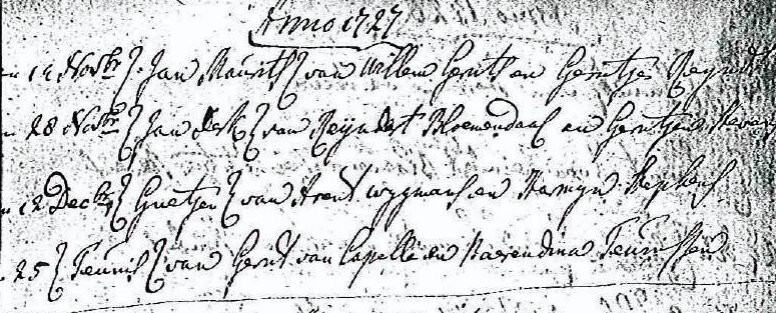 Anno 1727
12 Novbr Jan Maurits van Willem Gerrits en Gerritjen Reynd
28 Novbr Jan Derk van Reyndert Bloemendael en Gerritjen
12 Decbr Grietjen van Arent Wygmans en Harmyn Stephens
25 Teunis van Gerrit van Capelle en Barendina Teunissen